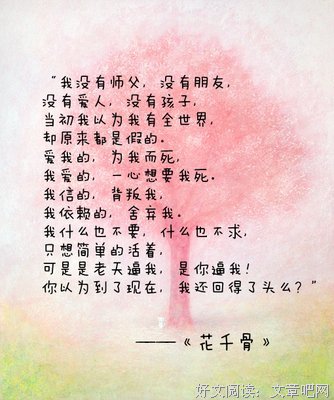 “我没有师父，没有朋友，
没有爱人，没有孩子，
当初我以为我有全世界，
却原来都是假的。
爱我的，为我而死，
我爱的，一心想要我死。
我信的，背叛我，
我依赖的，舍弃我。
我什么也不要，什么也不求，
只想简单的活着，
可是是老天逼我，是你逼我！
你以为到了现在，我还回得了头么？”
——《花千骨》
好文阅读：文章吧网